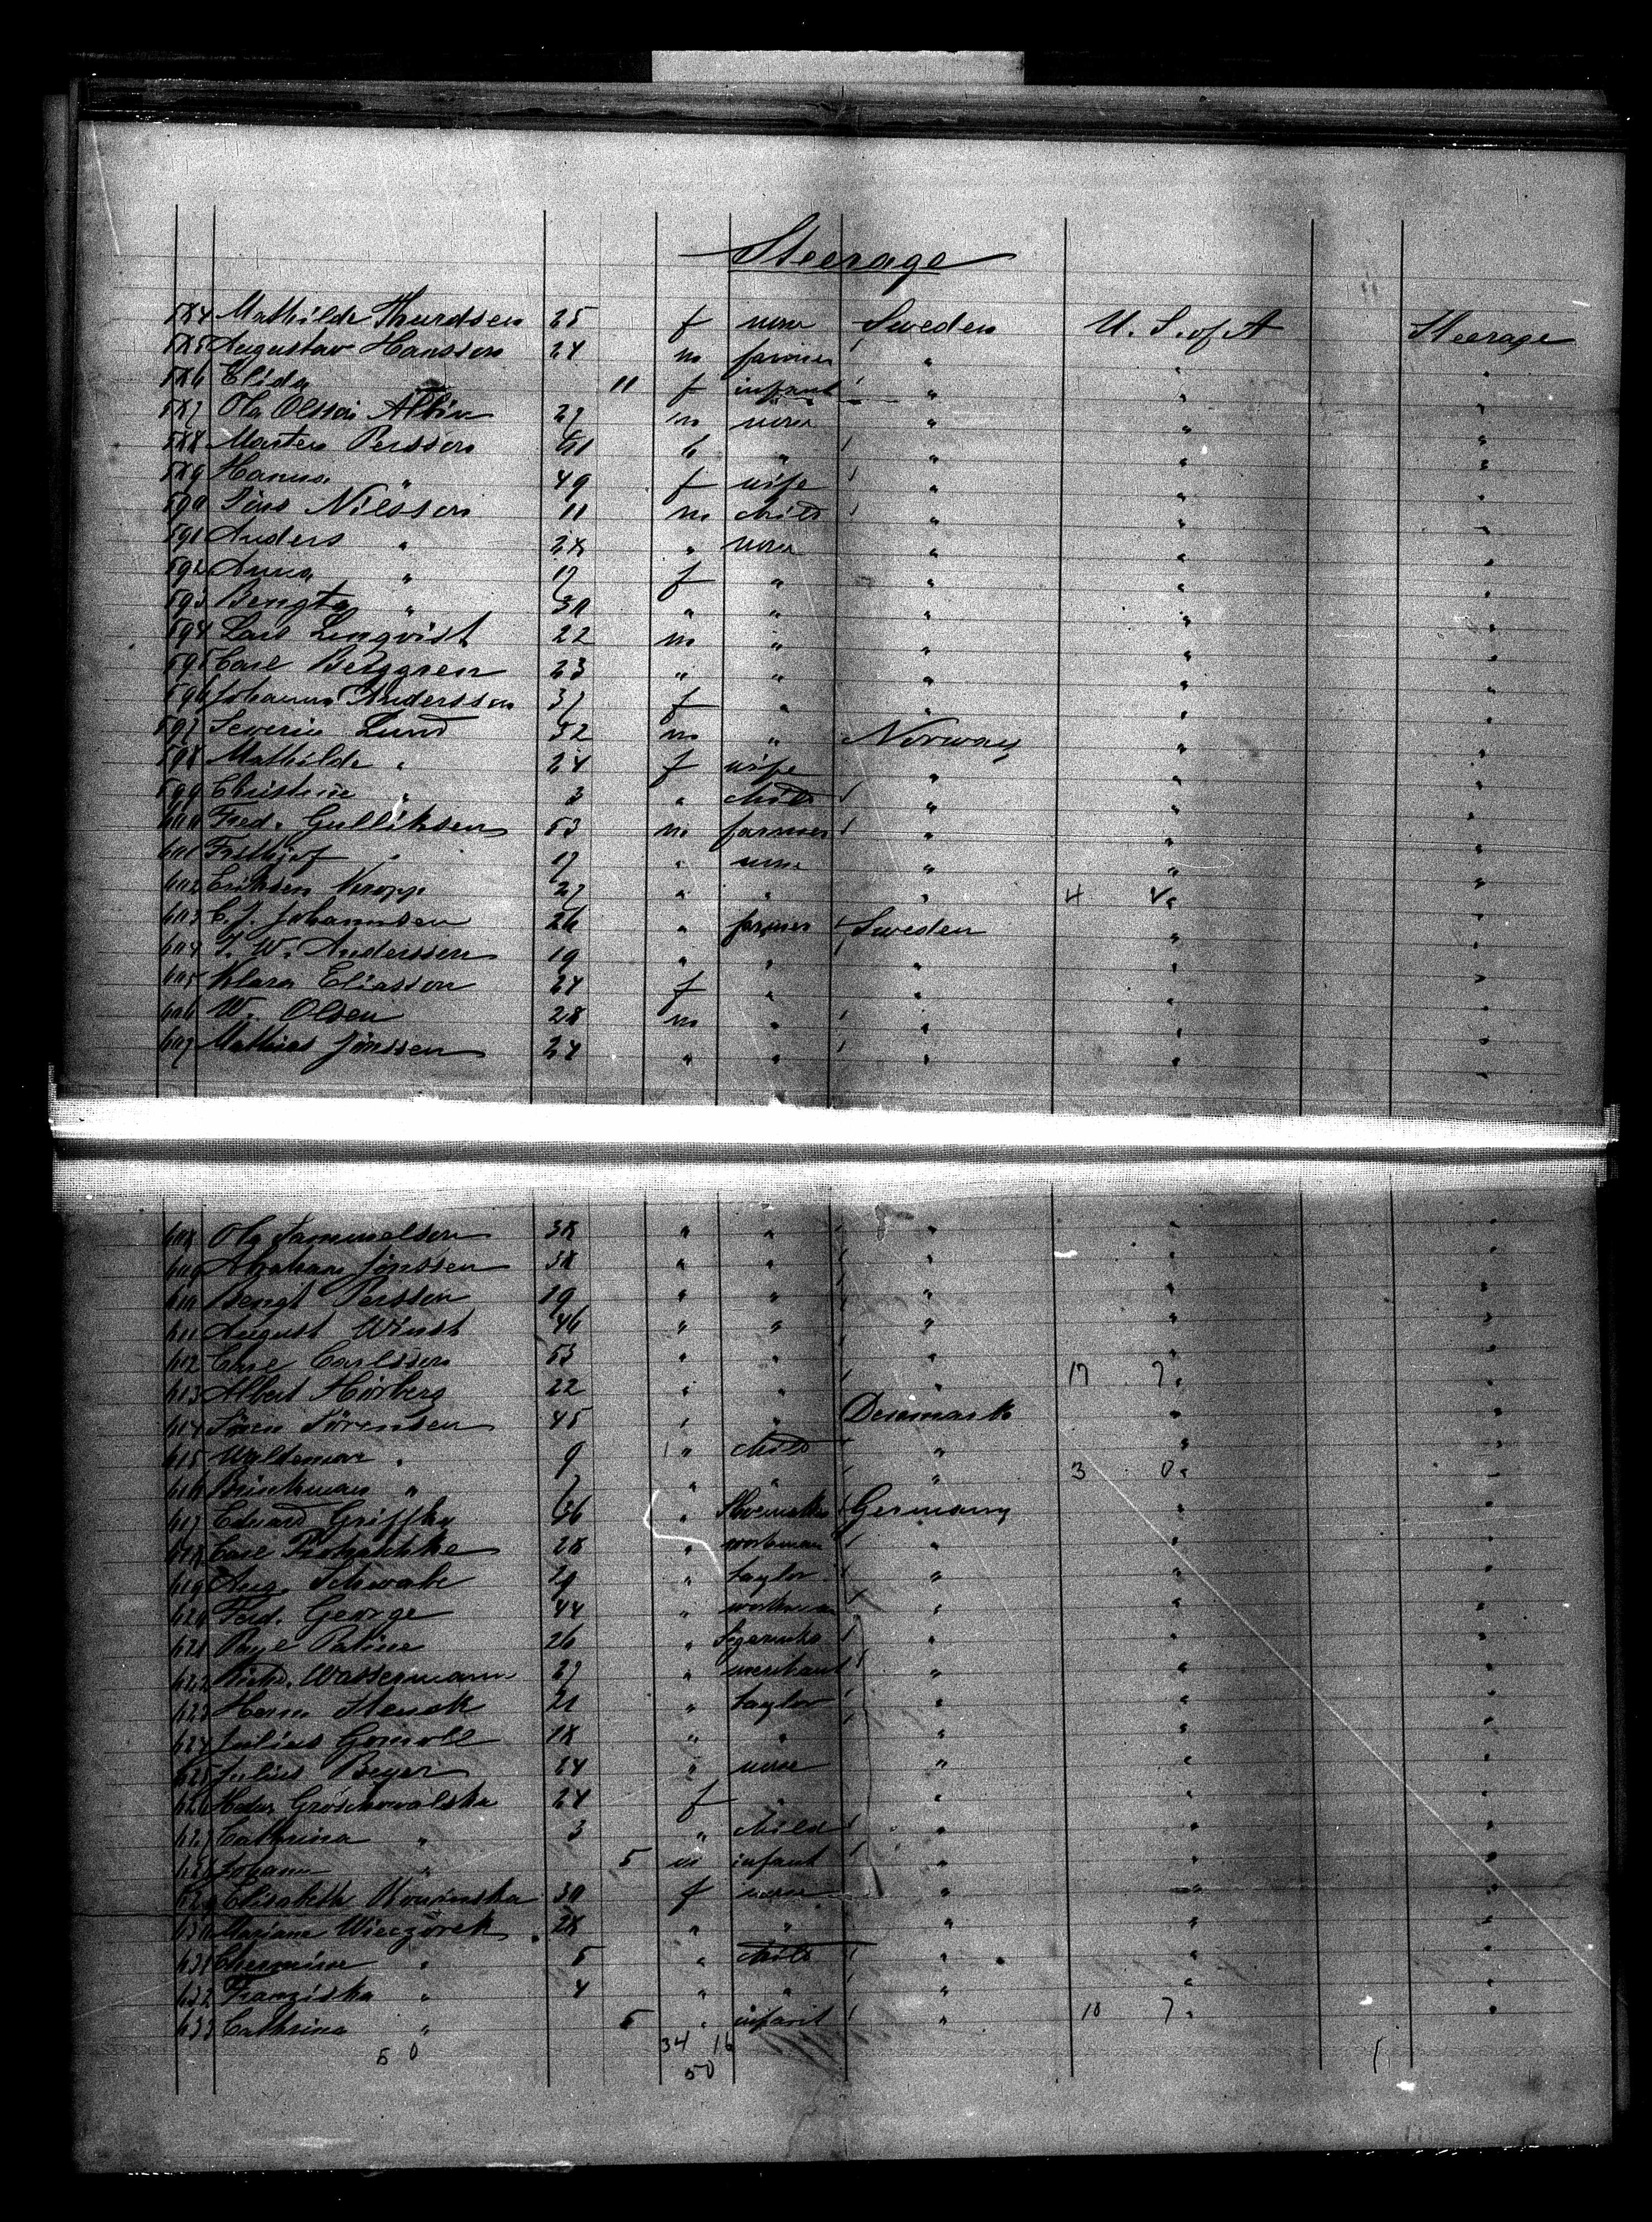 Steerage
584 Mathilde Thurdsen 25 f none Sweden U. S. of A Steerage
585 Augustav Hansson 24 m farmer " " "
586 Elida 11 f infant " " "
587 Ola Olsson Albin 27 m none " " "
588 Morten Persson " " " "
589 Hanna " 49 f wife " " "
590 Jöns Nilsson 11 m child " " "
591 Anders " 28 " none " " "
592 Anna " 17 f " " " "
593 Bengta " 30 " " " " "
594 Lars Lenqvist 22 m " " " "
595 Carl Berggren 23 " " " " "
596 Johanna Anderssen 37 f " " " "
597 Severin Lund 32 m " Norway " "
598 Mathilde " 24 f wife " " "
599 Christine " 3 " child " " "
600 Fred. Gulliksen 53 m farmer " " "
601 Frithjof " 17 " none " " "
602 Eriksen 27 " " " 4 "
603 C. J. Johannsen 26 " farmer Sweden " "
604 T. W. Anderssen 19 " " " " "
605 Klara Eliasson 24 f " " " "
606 W. Olsen 28 m " " " "
607 Mathias Jönssen 24 " " " " "
608 Ola Sammelson 38 " " " " "
609 Abraham Jönssen 38 " " " " "
610 Bengt Persson 19 " " " " "
611 August Winst 46 " " " " "
612 Carl Carlsson 53 " " " " "
613 Albert Hörberg 22 " " " 17 7 "
614 Sören Sörensen 45 " " Denmark " "
615 Waldemar " 9 " child " " "
616 Brinkman " 7 " " " 3 0 "
617 Eduard Griffky " Germany " "
618 Carl 28 " workman " " "
619 Aug. Schwabe " taylor " " "
620 Ferd. George 44 " workman " " "
621 26 " " " "
622 Wassermann 27 " merchant " " "
623 Herm. Stenck 21 " taylor " " "
624 Julius Gomoll 18 " " " " "
625 Julius Beyer 24 " none " " "
626 Groschowalska 24 f " " " "
627 Cathrina " 3 " child " " "
628 Johann " 5 m infant " " "
629 Elisabeth 30 f none " " "
630 Mariane Wieczorek 28 " " " " "
631 " 5 " child " " "
632 Franziska " 4 " " " " "
633 Cathrina " 5 " infant " 10 7 "
50 34 16
50